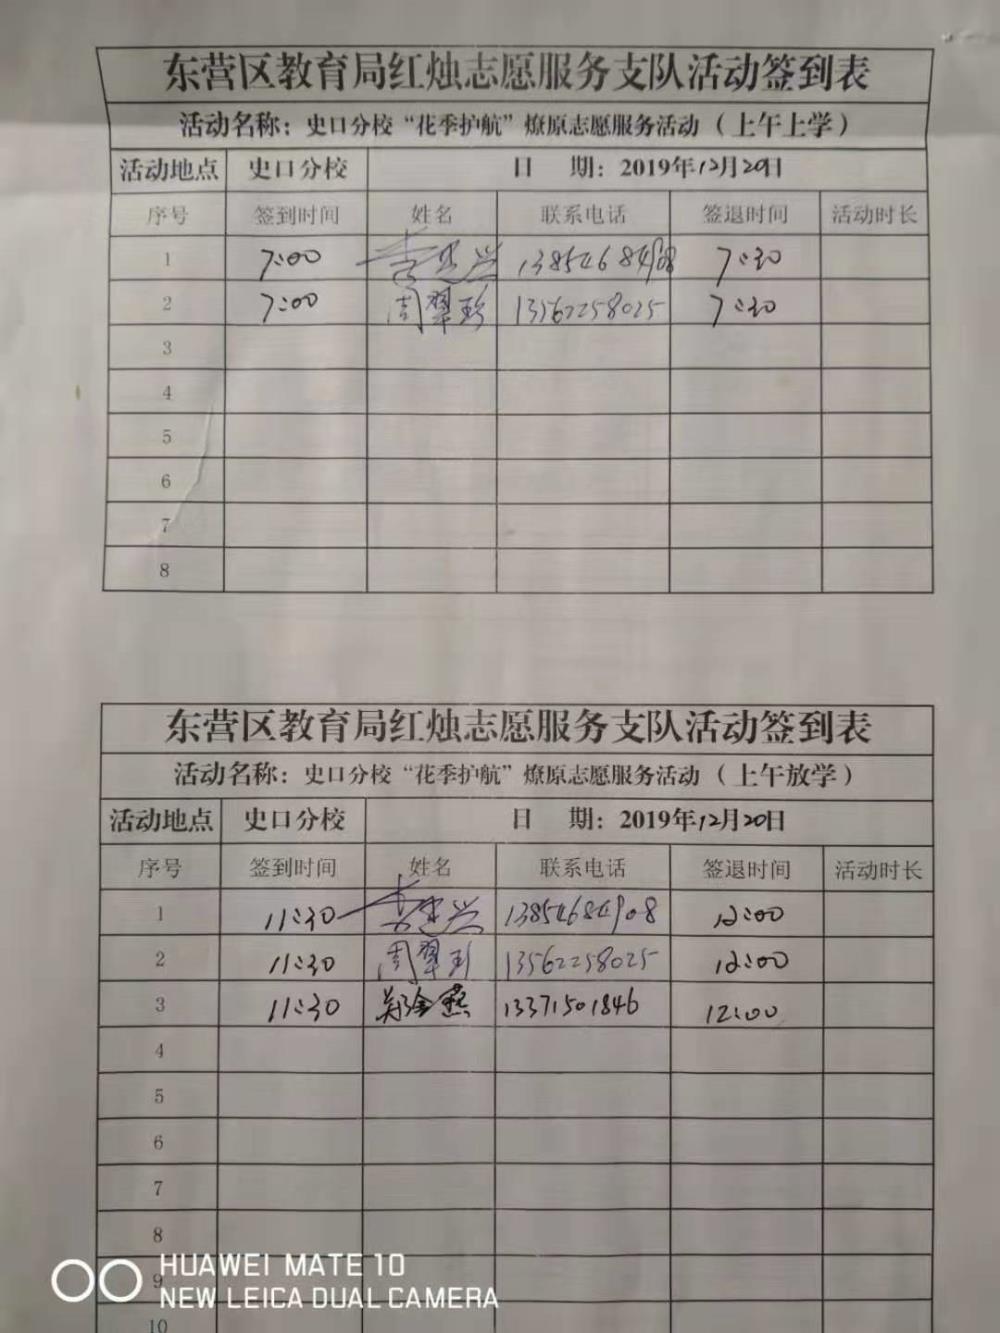 东营区教育局红烛志愿服务支队活动签到表
活动名称：史口分校“花季护航”燎原志愿服务活动（上午上学）
活动地点 史口分校 日 期：2019年12月20日
序号 签到时间 姓名 联系电话 签退时间 活动时长
1 7:00 13854684908 7:30
2 7:00 周翠珍 13562258025 7:30
3
4
5
6
7
8
东营区教育局红烛志愿服务支队活动签到表
活动名称：史口分校“花季护航”燎原志愿服务活动（上午放学）
活动地点 史口分校 日 期：2019年12月20日
序号 签到时间 姓名 联系电话 签退时间 活动时长
1 11:30 13854684908 12:00
2 11:30 周翠珍 13562258025 12:00
3 11:30 郑金燕 13371501846 12:00
4
5
6
7
8
9
10
HUAWEI MATE 10
NEW LEICA DUAL CAMERA